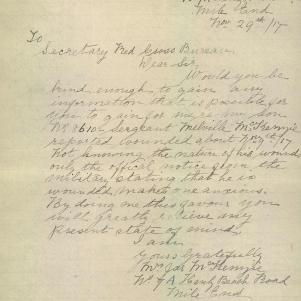 Mile End
Nov 29th/17
To
Secretary Red Cross Bureau
Dear Sir,
Would you be
kind enough to gain any
information that is possible for
you to gain for me re my son
Sergeant Melville McKenzie
reported wounded about
Not knowing the nature of his wounds
only the official notice from the
military stating that he is
wounded, makes one anxious.
By doing me this favour you
will greatly relieve any
present state of mind.
I am
Yours Gratefully
Mrs McKenzie
Henly Beach Road
Mile End